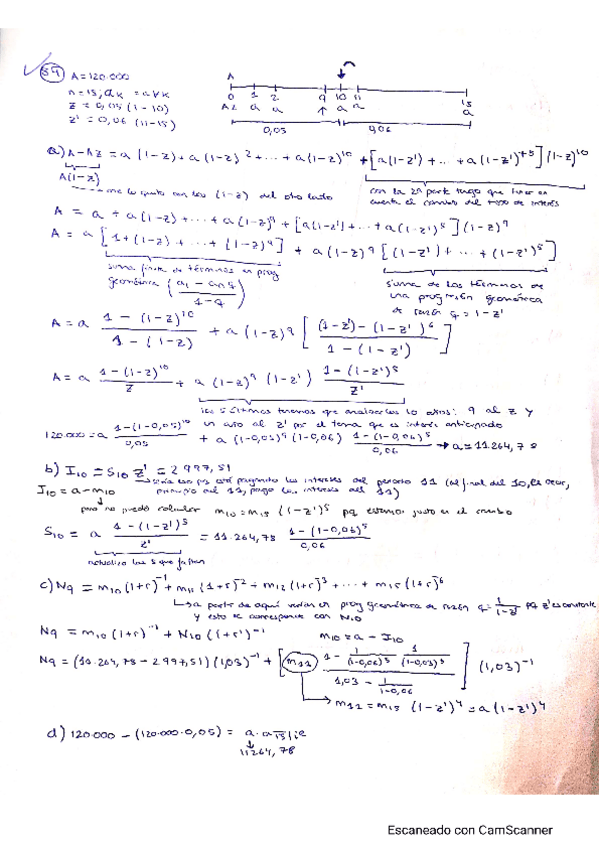 59) A = 120.000
n = 15; ak = a ∀k
z = 0,05 (1-10)
z' = 0,06 (11-15)
A
0 1 2 9 10 11 15
Az a a ↑ a a a
0,05 0,06
a) A - Az = a(1-z) + a(1-z)² + ··· + a(1-z)¹⁰ + [a(1-z') + ··· + a(1-z')⁺⁵](1-z)¹⁰
A(1-z)
me lo quito con los (1-z) del otro lado
con la 2ª parte tengo que tener en cuenta el cambio del tipo de interés
A = a + a(1-z) + ··· + a(1-z)⁹ + [a(1-z') + ··· + a(1-z')⁵](1-z)⁹
A = a[1 + (1-z) + ··· + (1-z)⁹] + a(1-z)⁹[(1-z') + ··· + (1-z')⁵]
suma finita de términos en prog geométrica (a₁ - anq / 1-q)
suma de los términos de una progresión geométrica de razón q = 1-z'
A = a 1-(1-z)¹⁰ / 1-(1-z) + a(1-z)⁹ [(1-z')-(1-z')⁶ / 1-(1-z')]
A = a 1-(1-z)¹⁰ / z + a(1-z)⁹(1-z') 1-(1-z')⁵ / z'
los 5 últimos tenemos que analizarlos 10 años: 9 al z y
un año al z' por el tema que es interés anticipado
120.000 = a 1-(1-0,05)¹⁰ / 0,05 + a(1-0,05)⁹(1-0,06) 1-(1-0,06)⁵ / 0,06 → a = 11.264,78
b) I₁₀ = S₁₀ z' = 2997,51
pagando los intereses del periodo 11 (al final del 10, es decir,
I₁₀ = a - m₁₀ principio del 11, pago los intereses del 11)
pero no puedo calcular m₁₀ = m₁₅(1-z')⁵ pq estamos justo en el cambio
S₁₀ = a 1-(1-z')⁵ / z' = 11.264,78 1-(1-0,06)⁵ / 0,06
actualizo los 5 que faltan
c) N₉ = m₁₀(1+r)⁻¹ + m₁₁(1+r)² + m₁₂(1+r)³ + ··· + m₁₅(1+r)⁶
a partir de aquí varían en prog geométrica de razón q = 1/1-z' pq z' es constante
y esto se corresponde con N₁₀
N₉ = m₁₀(1+r)⁻¹ + N₁₀(1+r')⁻¹ m₁₀ = a - I₁₀
N₉ = (11.264,78 - 2997,51)(1,03)⁻¹ + [m₁₁ 1 - 1/(1-0,06)⁵ 1/(1,03)⁵ / 1,03 - 1/1-0,06](1,03)⁻¹
m₁₁ = m₁₅(1-z')⁴ = a(1-z')⁴
d) 120.000 - (120.000·0,05) = a·a15|ie
11264,78
Escaneado con CamScanner